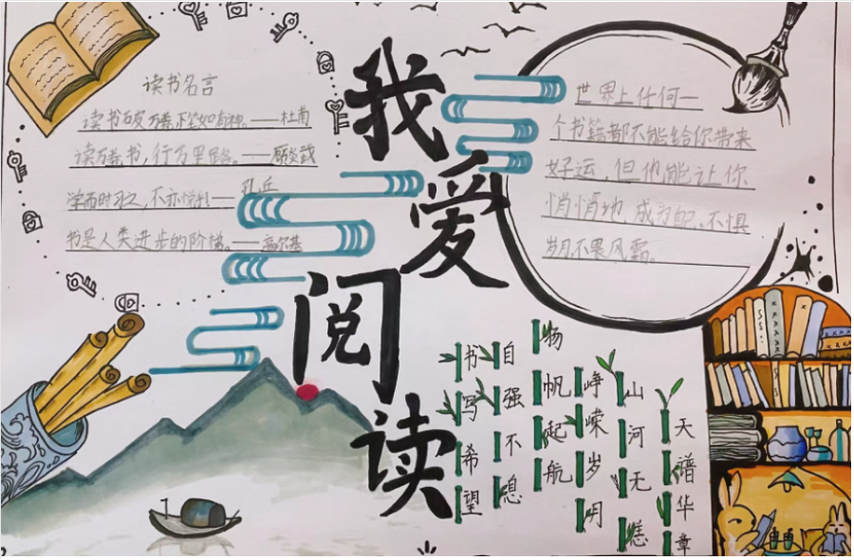 我爱阅读
读书名言
读书破万卷下笔如有神。——杜甫
读万卷书,行万里路。——顾炎武
学而时习之,不亦悦乎!——孔丘
书是人类进步的阶梯。——高尔基
世界上任何一
个书籍都不能给你带来
好运,但他能让你
悄悄地,成为 不惧
岁月不畏风霜。
天谱华章
山河无恙
峥嵘岁月
帆起航
自强不息
书写希望